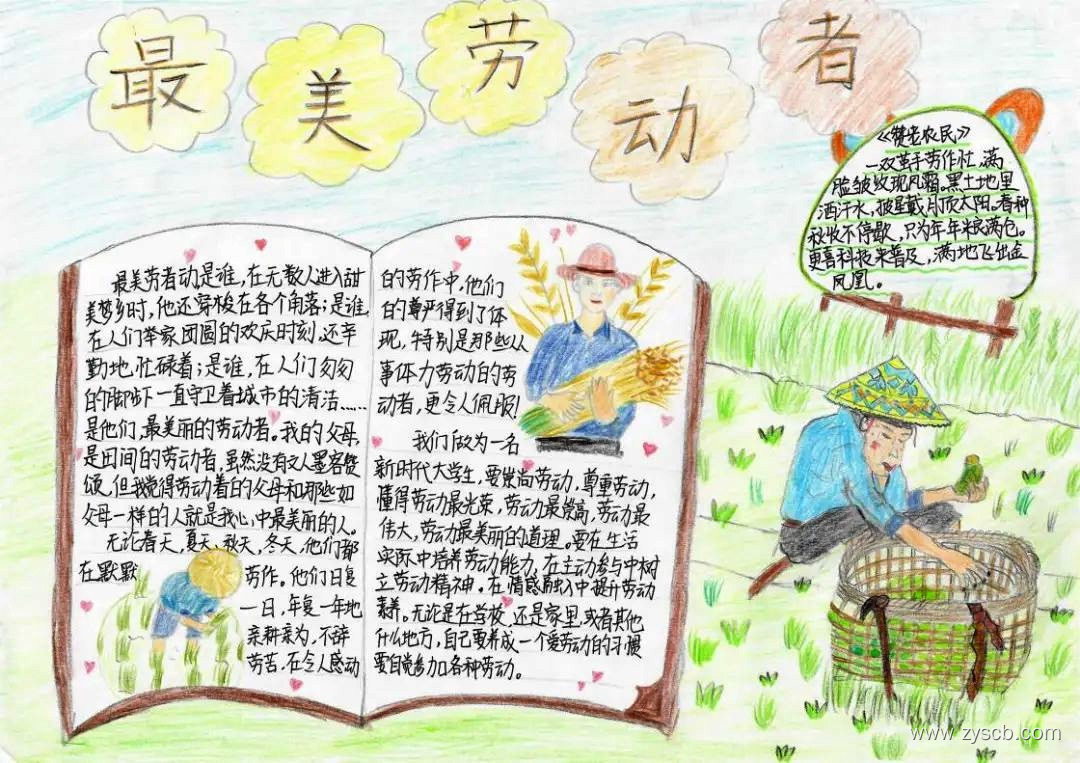 最美劳动者
《赞老农民》
一双茧手劳作忙,满
脸皱纹现风霜。黑土地里
洒汗水,披星戴月顶太阳。春种
秋收不停歇,只为年年米粮满仓。
更喜科技来普及,满地飞出金
凤凰。
最美劳者动是谁,在无数人进入甜
美梦乡时,他还穿梭在各个角落;是谁,
在人们举家团圆的欢乐时刻,还辛
勤地忙碌着;是谁,在人们匆匆
的脚步下一直守卫着城市的清洁……
是他们,最美丽的劳动者。我的父母,
是田间的劳动者,虽然没有文人墨客赞
颂,但我觉得劳动着的父母和那些如
父母一样的人就是我心中最美丽的人。
无论春天,夏天,秋天,冬天,他们都
在默默
劳作,他们日复
一日,年复一年地
亲耕亲为,不辞
劳苦,在令人感动
的劳作中,他们
的尊严得到了体
现,特别是那些从
事体力劳动的劳
动者,更令人佩服!
我们做为一名
新时代大学生,要崇尚劳动,尊重劳动,
懂得劳动最光荣,劳动最崇高,劳动最
伟大,劳动最美丽的道理。要在生活
实际中培养劳动能力,在主动参与中树
立劳动精神。在情感融入中提升劳动
素养。无论是在学校,还是家里,或者其他
什么地方,自己要养成一个爱劳动的习惯
要自觉参加各种劳动。
www.zyscb.com